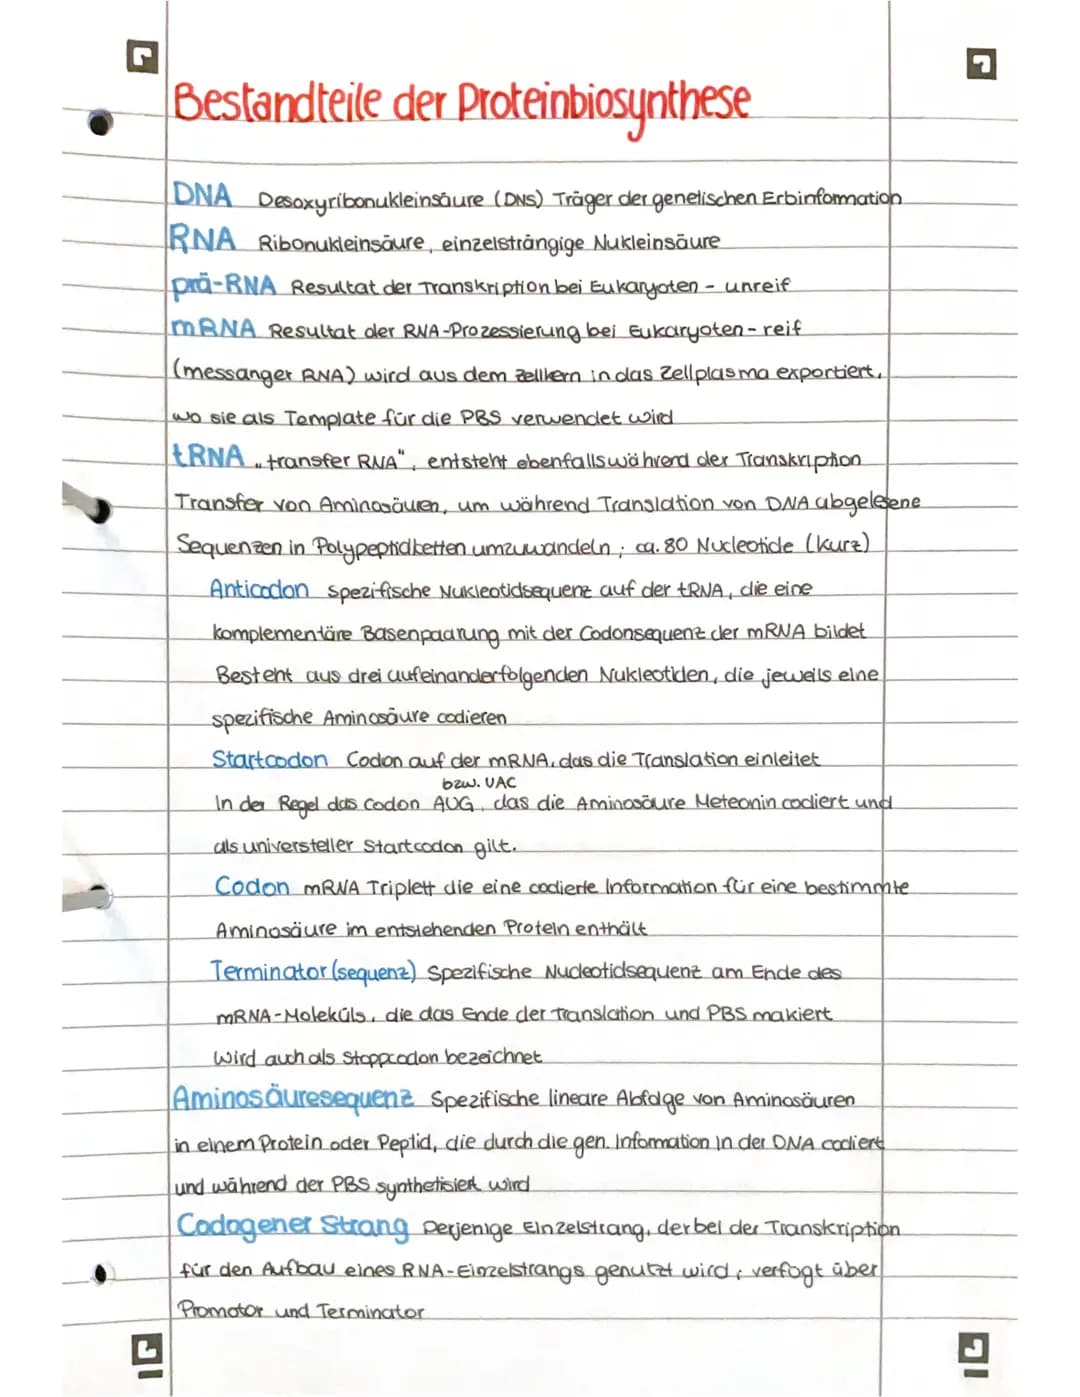 Bestandteile der Proteinbiosynthese
DNA Desoxyribonukleinsäure (DNS) Träger der genetischen Erbinformation
RNA Ribonukleinsäure, einzelsträngige Nukleinsäure
prä-RNA Resultat der Transkription bei Eukaryoten - unreif
mRNA Resultat der RNA-Prozessierung bei Eukaryoten - reif
(messanger RNA) wird aus dem Zellkern in das Zellplasma exportiert,
wo sie als Template für die PBS verwendet wird
tRNA „transfer RNA", entsteht ebenfalls während der Transkription
Transfer von Aminosäuren, um während Translation von DNA abgelesene
Sequenzen in Polypeptidketten umzuwandeln; ca. 80 Nucleotide (kurz)
Anticodon spezifische Nukleotidsequenz auf der tRNA, die eine
komplementäre Basenpaarung mit der Codonsequenz der mRNA bildet
Besteht aus drei aufeinanderfolgenden Nukleotiden, die jeweils eine
spezifische Aminosäure codieren
Startcodon Codon auf der mRNA, das die Translation einleitet
bzw. UAC
In der Regel das Codon AUG, das die Aminosäure Meteonin codiert und
als universeller Startcodon gilt.
Codon mRNA Triplett die eine codierte Information für eine bestimmte
Aminosäure im entstehenden Protein enthält
Terminator(sequenz) Spezifische Nucleotidsequenz am Ende des
mRNA-Moleküls, die das Ende der Translation und PBS makiert
Wird auch als Stoppcodon bezeichnet
Aminosäuresequenz Spezifische lineare Abfolge von Aminosäuren
in einem Protein oder Peptid, die durch die gen. Information in der DNA codiert
und während der PBS synthetisiert wird
Codogener Strang Derjenige Einzelstrang, der bei der Transkription
für den Aufbau eines RNA-Einzelstrangs genutzt wird; verfogt über
Promotor und Terminator